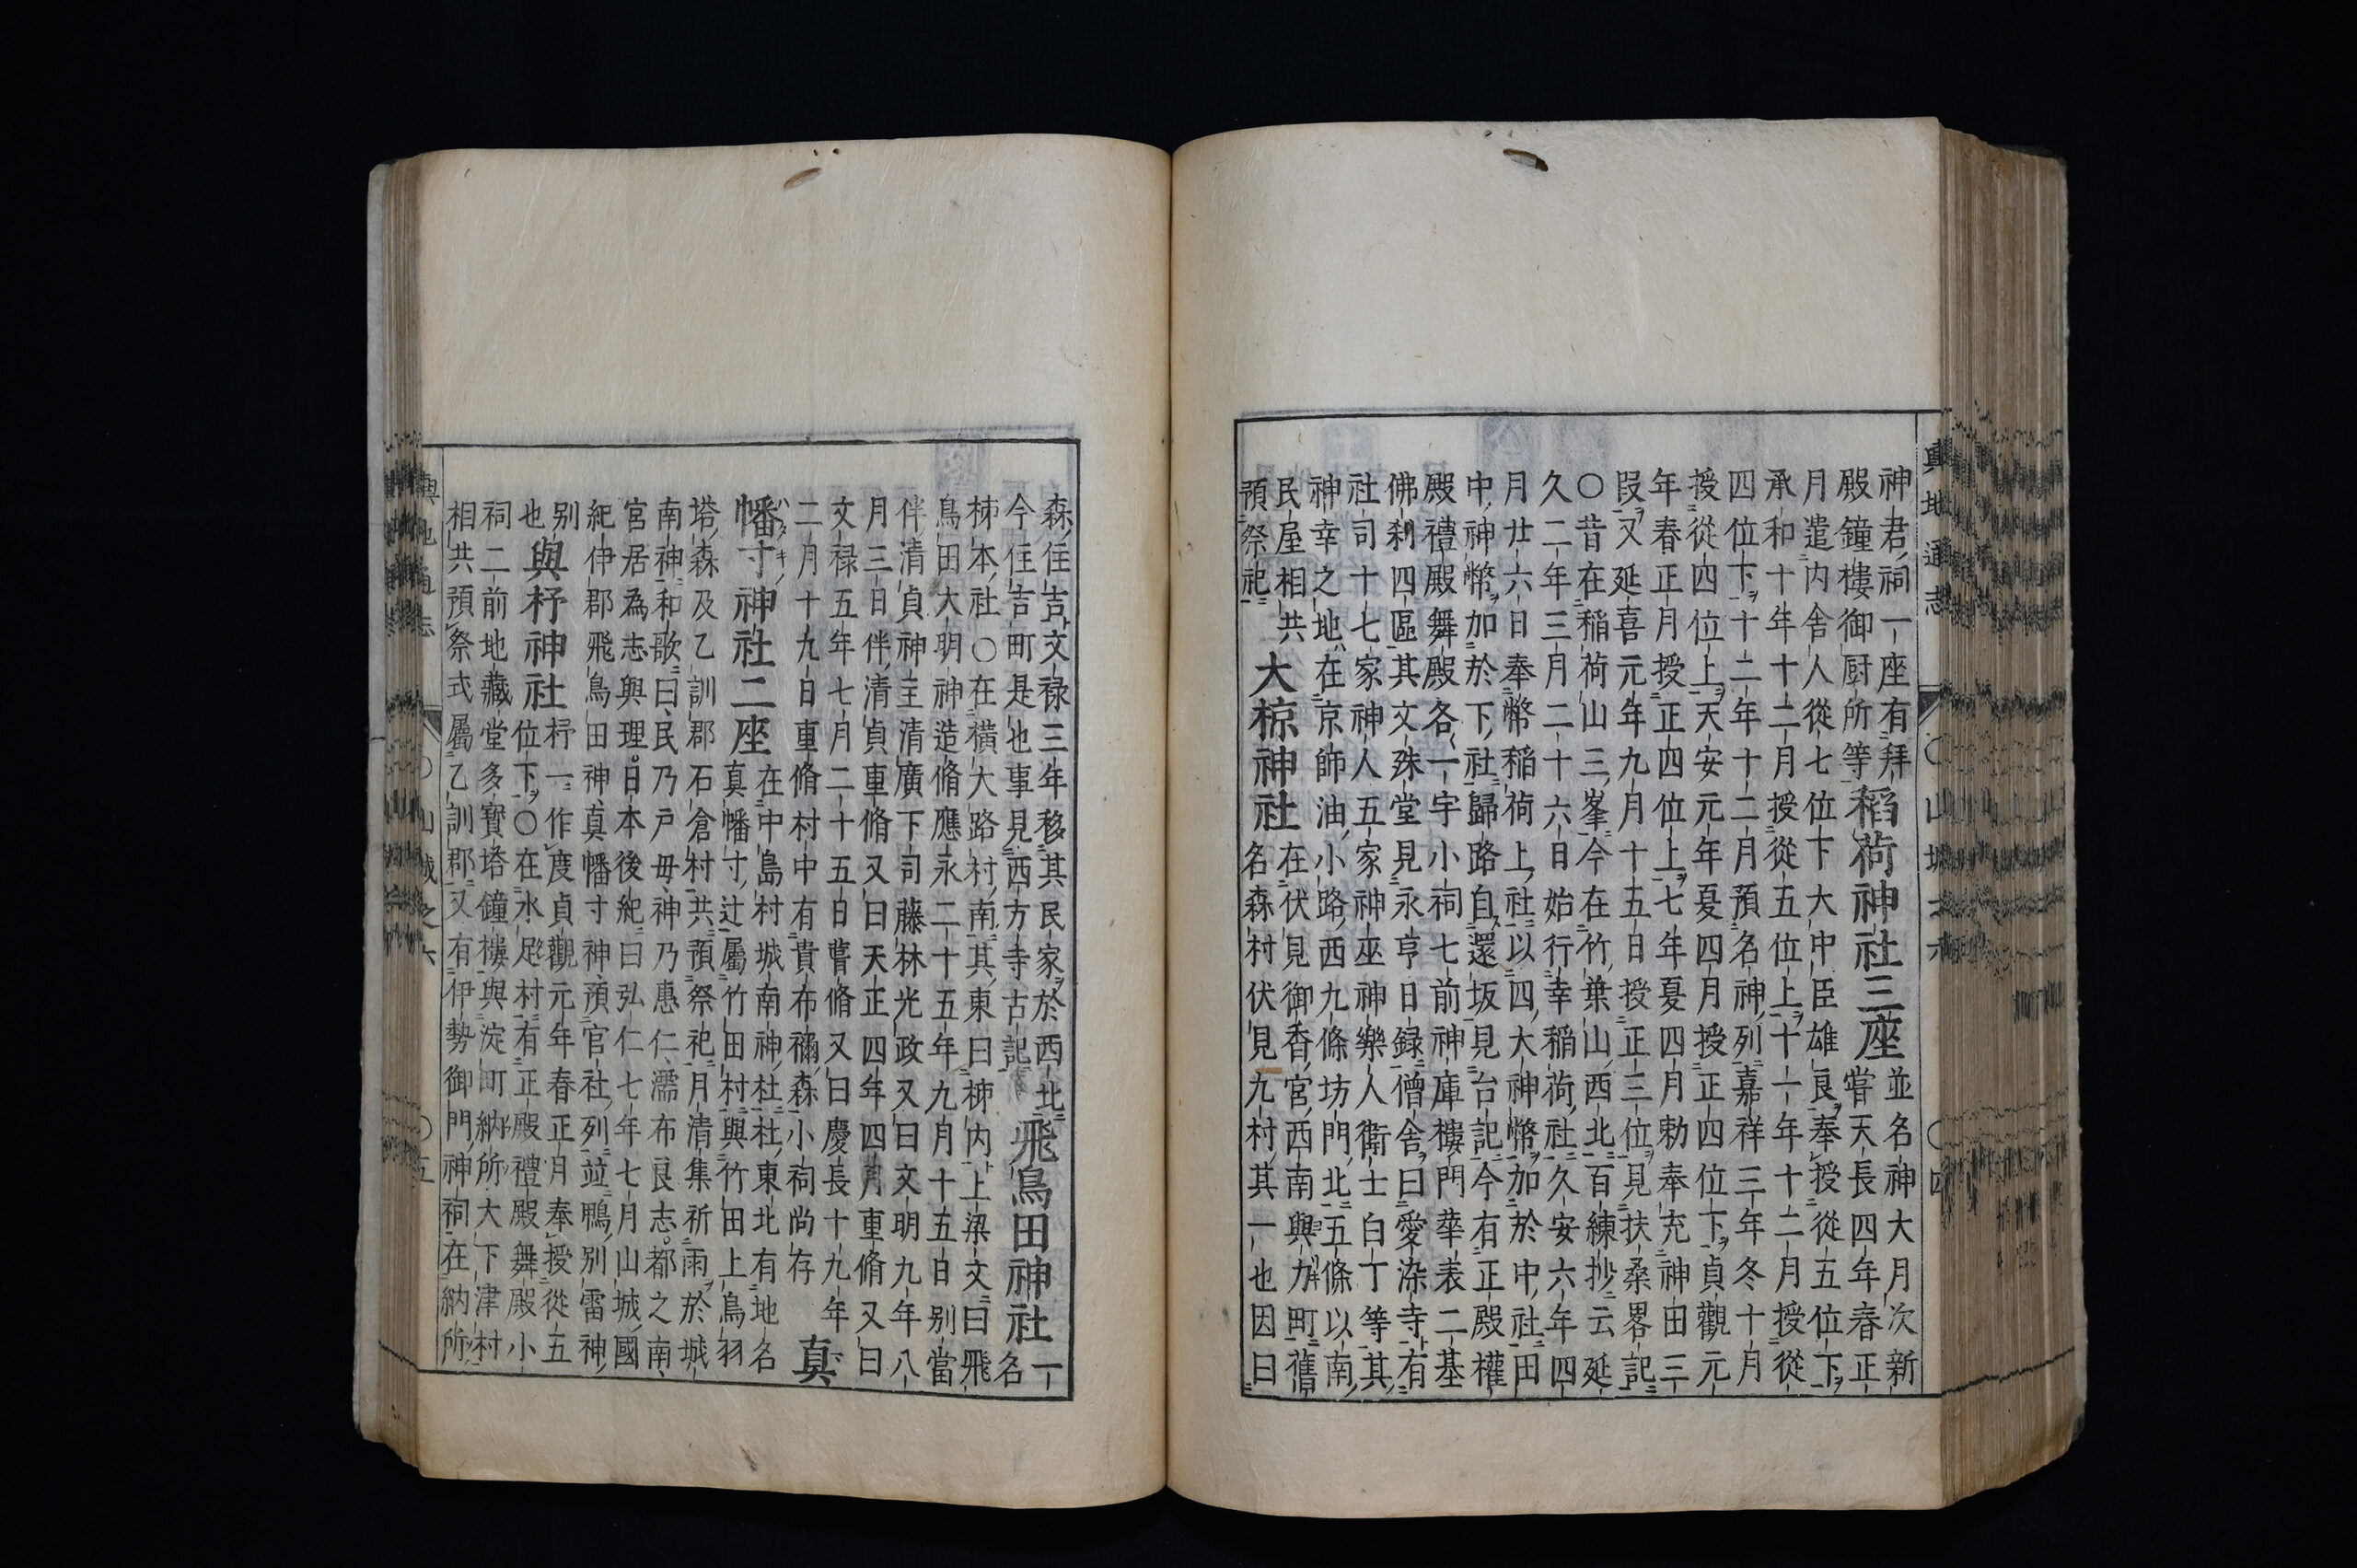 神君祠一座有拜
殿鐘樓御厨所等稻荷神社三座並名神大月次新
嘗天長四年春正
月遣内舍人從七位下大中臣雄良奉授從五位下
承和十年十二月授從五位上十一年十二月授從
四位下十二年十二月預名神列嘉祥三年冬十月
授從四位上天安元年夏四月授正四位下貞觀元
年春正月授正四位上七年夏四月勅奉充神田三
段又延喜元年九月十五日授正三位見扶桑畧記
〇昔在稲荷山三峯今在竹葉山西北百練抄云延
久二年三月二十六日始行幸稲荷社久安六年四
月廿六日奉幣稲荷上社以四大神幣加於中社田
中神幣加於下社歸路自還坂見台記今有正殿權
殿禮殿舞殿各一宇小祠七前神庫樓門華表二基
佛刹四區其文殊堂見永亨日録僧舍曰愛染寺有
社司十七家神人五家神巫神樂人衛士白丁等其
神幸之地在京師油小路西九條坊門北五條以南
民屋相共
預祭祀大椋神社在伏見御香宮西南與力町舊
名森村伏見九村其一也因曰
森住吉文禄三年移其民家於西北
今住吉町是也事見西方寺古記飛鳥田神社一
名
柹本社〇在横大路村南其東曰柹内上梁文曰飛
鳥田大明神造脩應永二十五年九月十五日別當
伴清貞神主清廣下司藤林光政又曰文明九年八
月三日伴清貞重脩又曰天正四年四月重脩又曰
文禄五年七月二十五日瞢脩又曰慶長十九年
二月十九日重脩村中有貴布禰森小祠尚存真
幡寸神社二座在中島村城南神杜社東北有地名
真幡寸辻屬竹田村與竹田上鳥羽
塔森及乙訓郡石倉村共預祭祀月清集祈雨於城
南神和歌曰民乃戸毋神乃惠仁濡布良志都之南
宮居為志與理日本後紀曰弘仁七年七月山城國
紀伊郡飛鳥田神真幡寸神預官社列並鴨別雷神
別
也與杼神社杼一作度貞觀元年春正月奉授從五
位下〇在水垂村有正殿禮殿舞殿小
祠二前地藏堂多寳塔鐘樓與淀町納所大下津村
相共預祭式屬乙訓郡又有伊勢御門神祠在納所
輿地通志
〇山城之六
〇四
輿地通志
〇山城之六
〇五